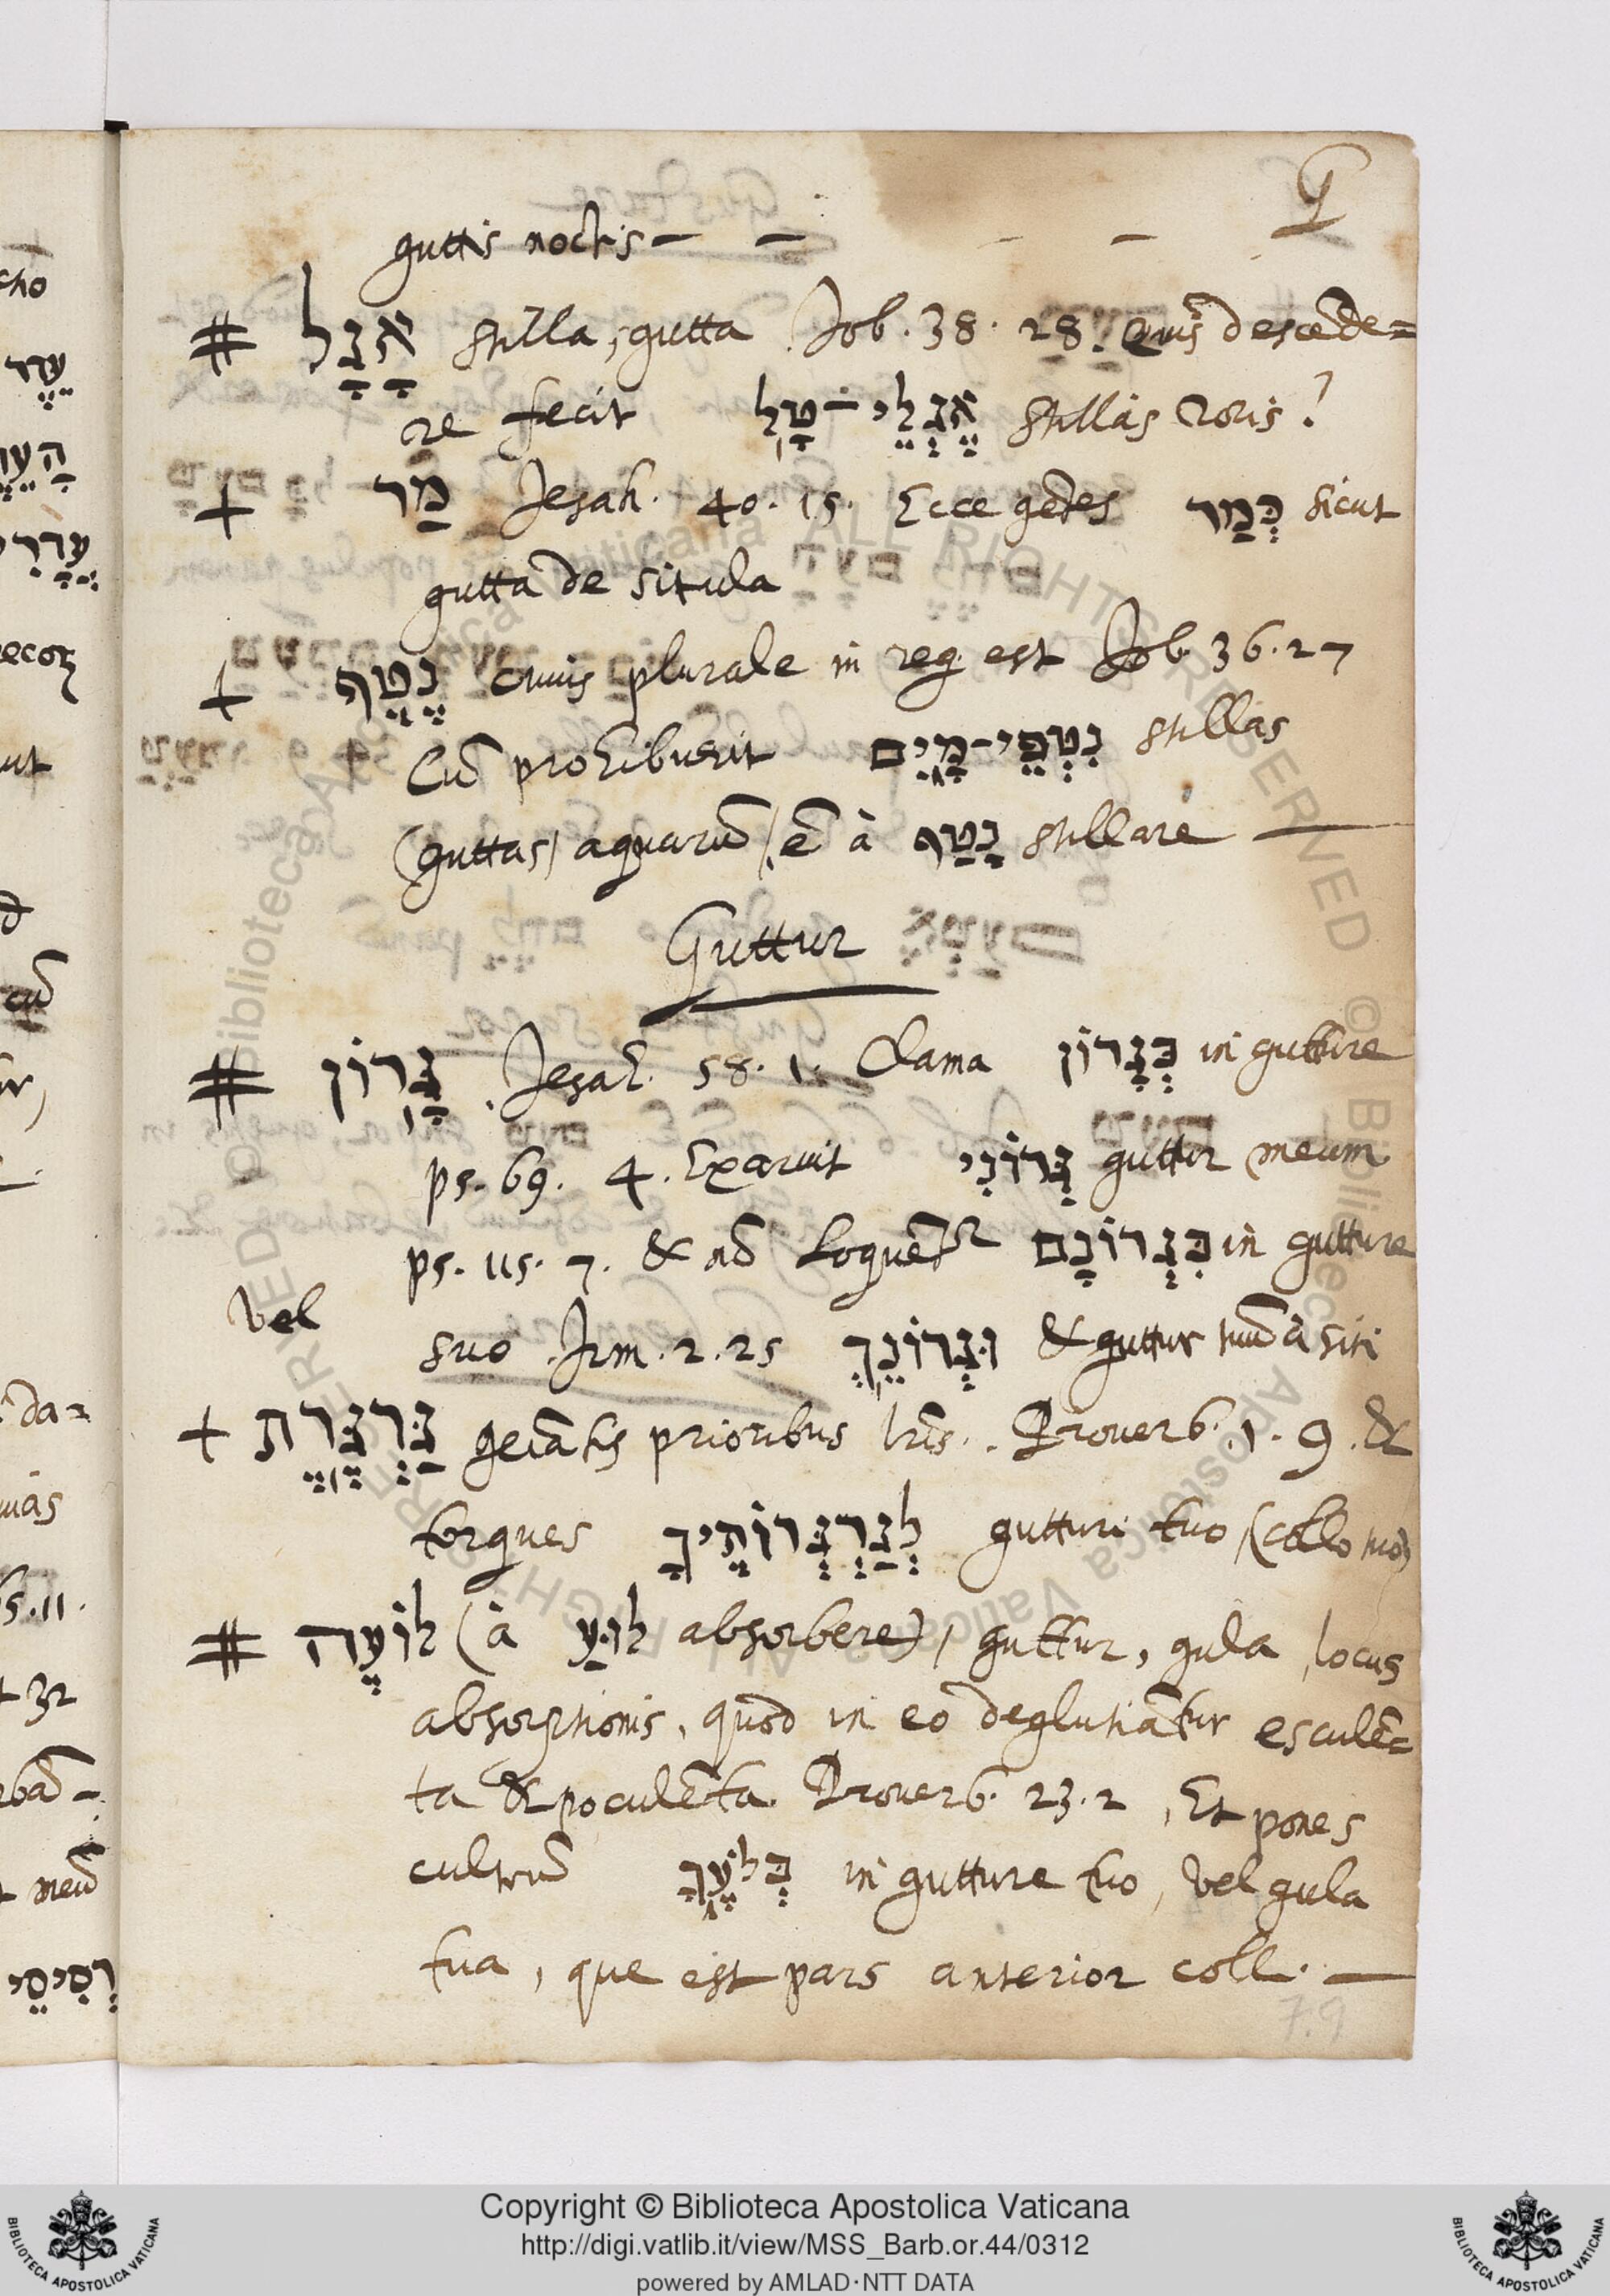 G
guttis noctis — — — —
# אָגָל stilla, gutta Job. 38. 28. Quis descēde=
re fecit אֶגְלֵי־טָל stillas roris?
+ מַר Jesah. 40. 15. Ecce gētes כְּמַר sicut
gutta de situla
+ נֶטֶף cuius plurale in reg. est Job. 36. 27
Cū prohibuerit נִטְפֵי־מָיִם stillas
(guttas) aquarū, ē à נָטַף stillare —
Guttur
# גָּרוֹן Jesah. 58. 1. Clama בְּגָרוֹן in gutture
ps. 69. 4. Exaruit גְּרוֹנִי guttur meum
ps. 115. 7. & nō loquētr בִּגְרוֹנָם in gutture
vel suo Jrm. 2. 25 וּגְרוֹנֵךְ & guttur tuū à siti
+ גַּרְגֶּרֶת gemātis prioribus lris. Prouerb. 1. 9. &
torques לְגַרְגְּרוֹתֶיךָ gutturi tuo, (collo tuo)
# לוֹעֶה (à לוּעַ absorbere), guttur, gula, locus
absorptionis, quod in eo deglutiātur esculē=
ta & poculēta. Prouerb. 23. 2, Et pones
cultrū בְּלֹעֶךָ in gutture tuo, vel gula
tua, que est pars anterior coll. —
7.9
cho
ecor
ut
cū
da=
uas
t 32
bā-
t meū
רְסִיסֵי
Copyright © Biblioteca Apostolica Vaticana
http://digi.vatlib.it/view/MSS_Barb.or.44/0312
powered by AMLAD·NTT DATA
BIBLIOTECA APOSTOLICA VATICANA
BIBLIOTECA APOSTOLICA VATICANA